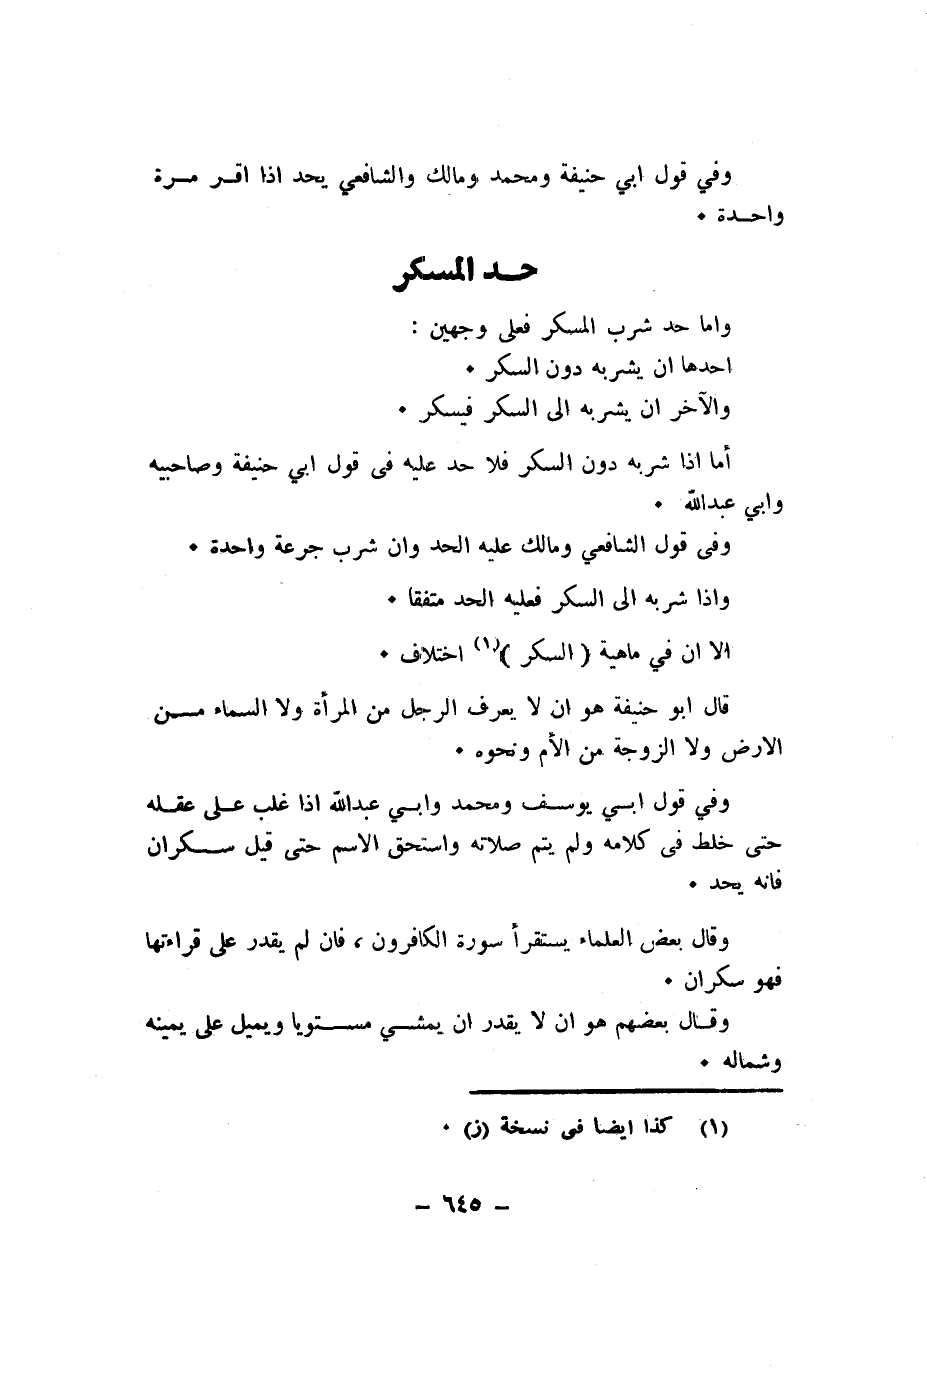 وفي قول ابي حنيفة ومحمد ومالك والشافعي يحد اذا اقر مرة
واحدة ٠
حد المسكر
واما حد شرب المسكر فعلى وجهين :
احدها ان يشربه دون السكر ٠
والآخر ان يشربه الى السكر فيسكر ٠
أما اذا شربه دون السكر فلا حد عليه فى قول ابي حنيفة وصاحبيه
وابي عبدالله ٠
وفى قول الشافعي ومالك عليه الحد وان شرب جرعة واحدة ٠
واذا شربه الى السكر فعليه الحد متفقا ٠
الا ان في ماهية ( السكر )(١) اختلاف ٠
قال ابو حنيفة هو ان لا يعرف الرجل من المرأة ولا السماء من
الارض ولا الزوجة من الأم ونحوه ٠
وفي قول ابي يوسف ومحمد وابي عبدالله اذا غلب على عقله
حتى خلط فى كلامه ولم يتم صلاته واستحق الاسم حتى قيل سكران
فانه يحد ٠
وقال بعض العلماء يستقرأ سورة الكافرون ، فان لم يقدر على قراءتها
فهو سكران ٠
وقال بعضهم هو ان لا يقدر ان يمشي مستويا ويميل على يمينه
وشماله ٠
(١) كذا ايضا فى نسخة (ز) ٠
- ٦٤٥ -